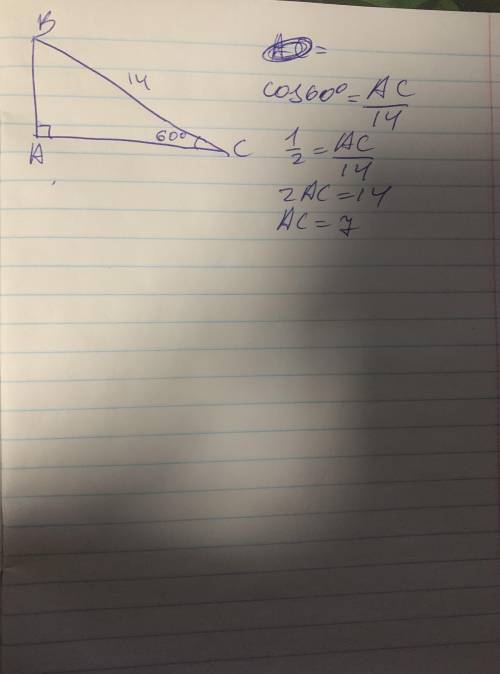 B
14
60°
A
C
=
cos60°=AC/14
1/2=AC/14
2AC=14
AC=7